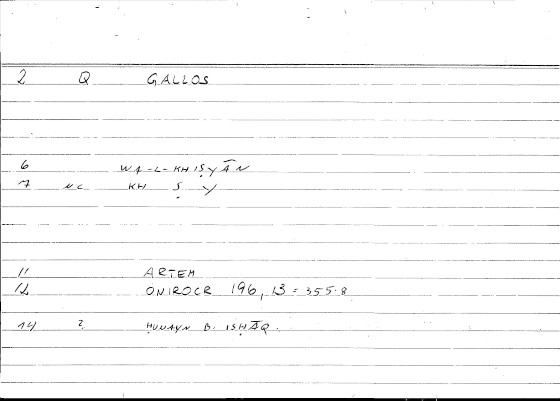 2 Q GALLOS
6 WA-L-KHIṢYĀN
7 NC KH Ṣ Y
11 ARTEM
12 ONIROCR 196,13 = 355.8
14 2 ḤUNAYN B. ISḤĀQ.